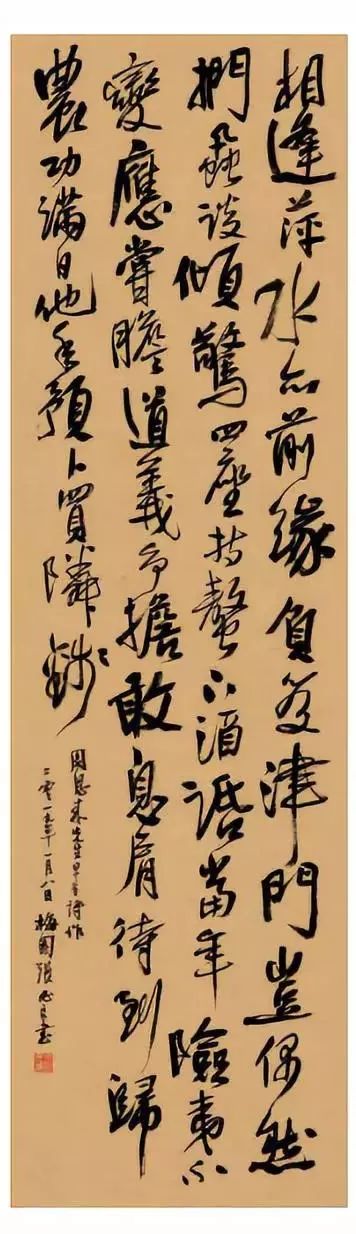 相逢萍水亦前緣負笈津門豈偶然
捫蝨談傾驚四座持螯下酒話當年險夷不
變應嘗膽道義爭擔敢息肩待到歸
農功滿日他年預卜買隣錢
周恩來先生早年詩作
二零一五年一月八日梅園張書